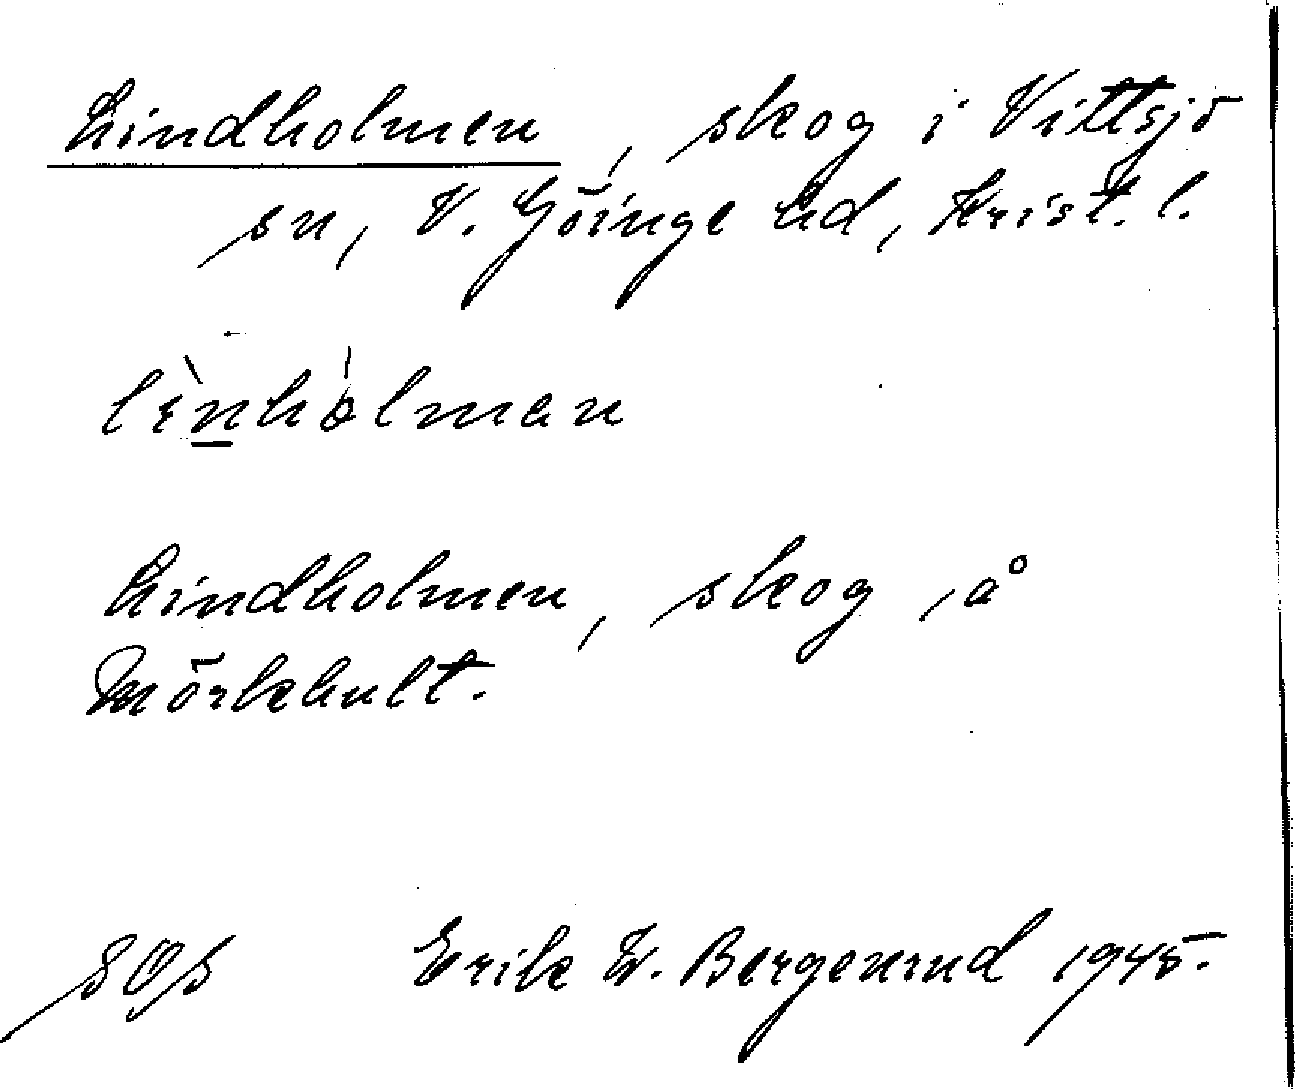 Lindholmen, skog i Vittsjö
sn, V. Göinge hd, Krist. l.
lìnhòlman
Lindholmen, skog å
Mörkhult.
Erik W. Bergenrud 1945.